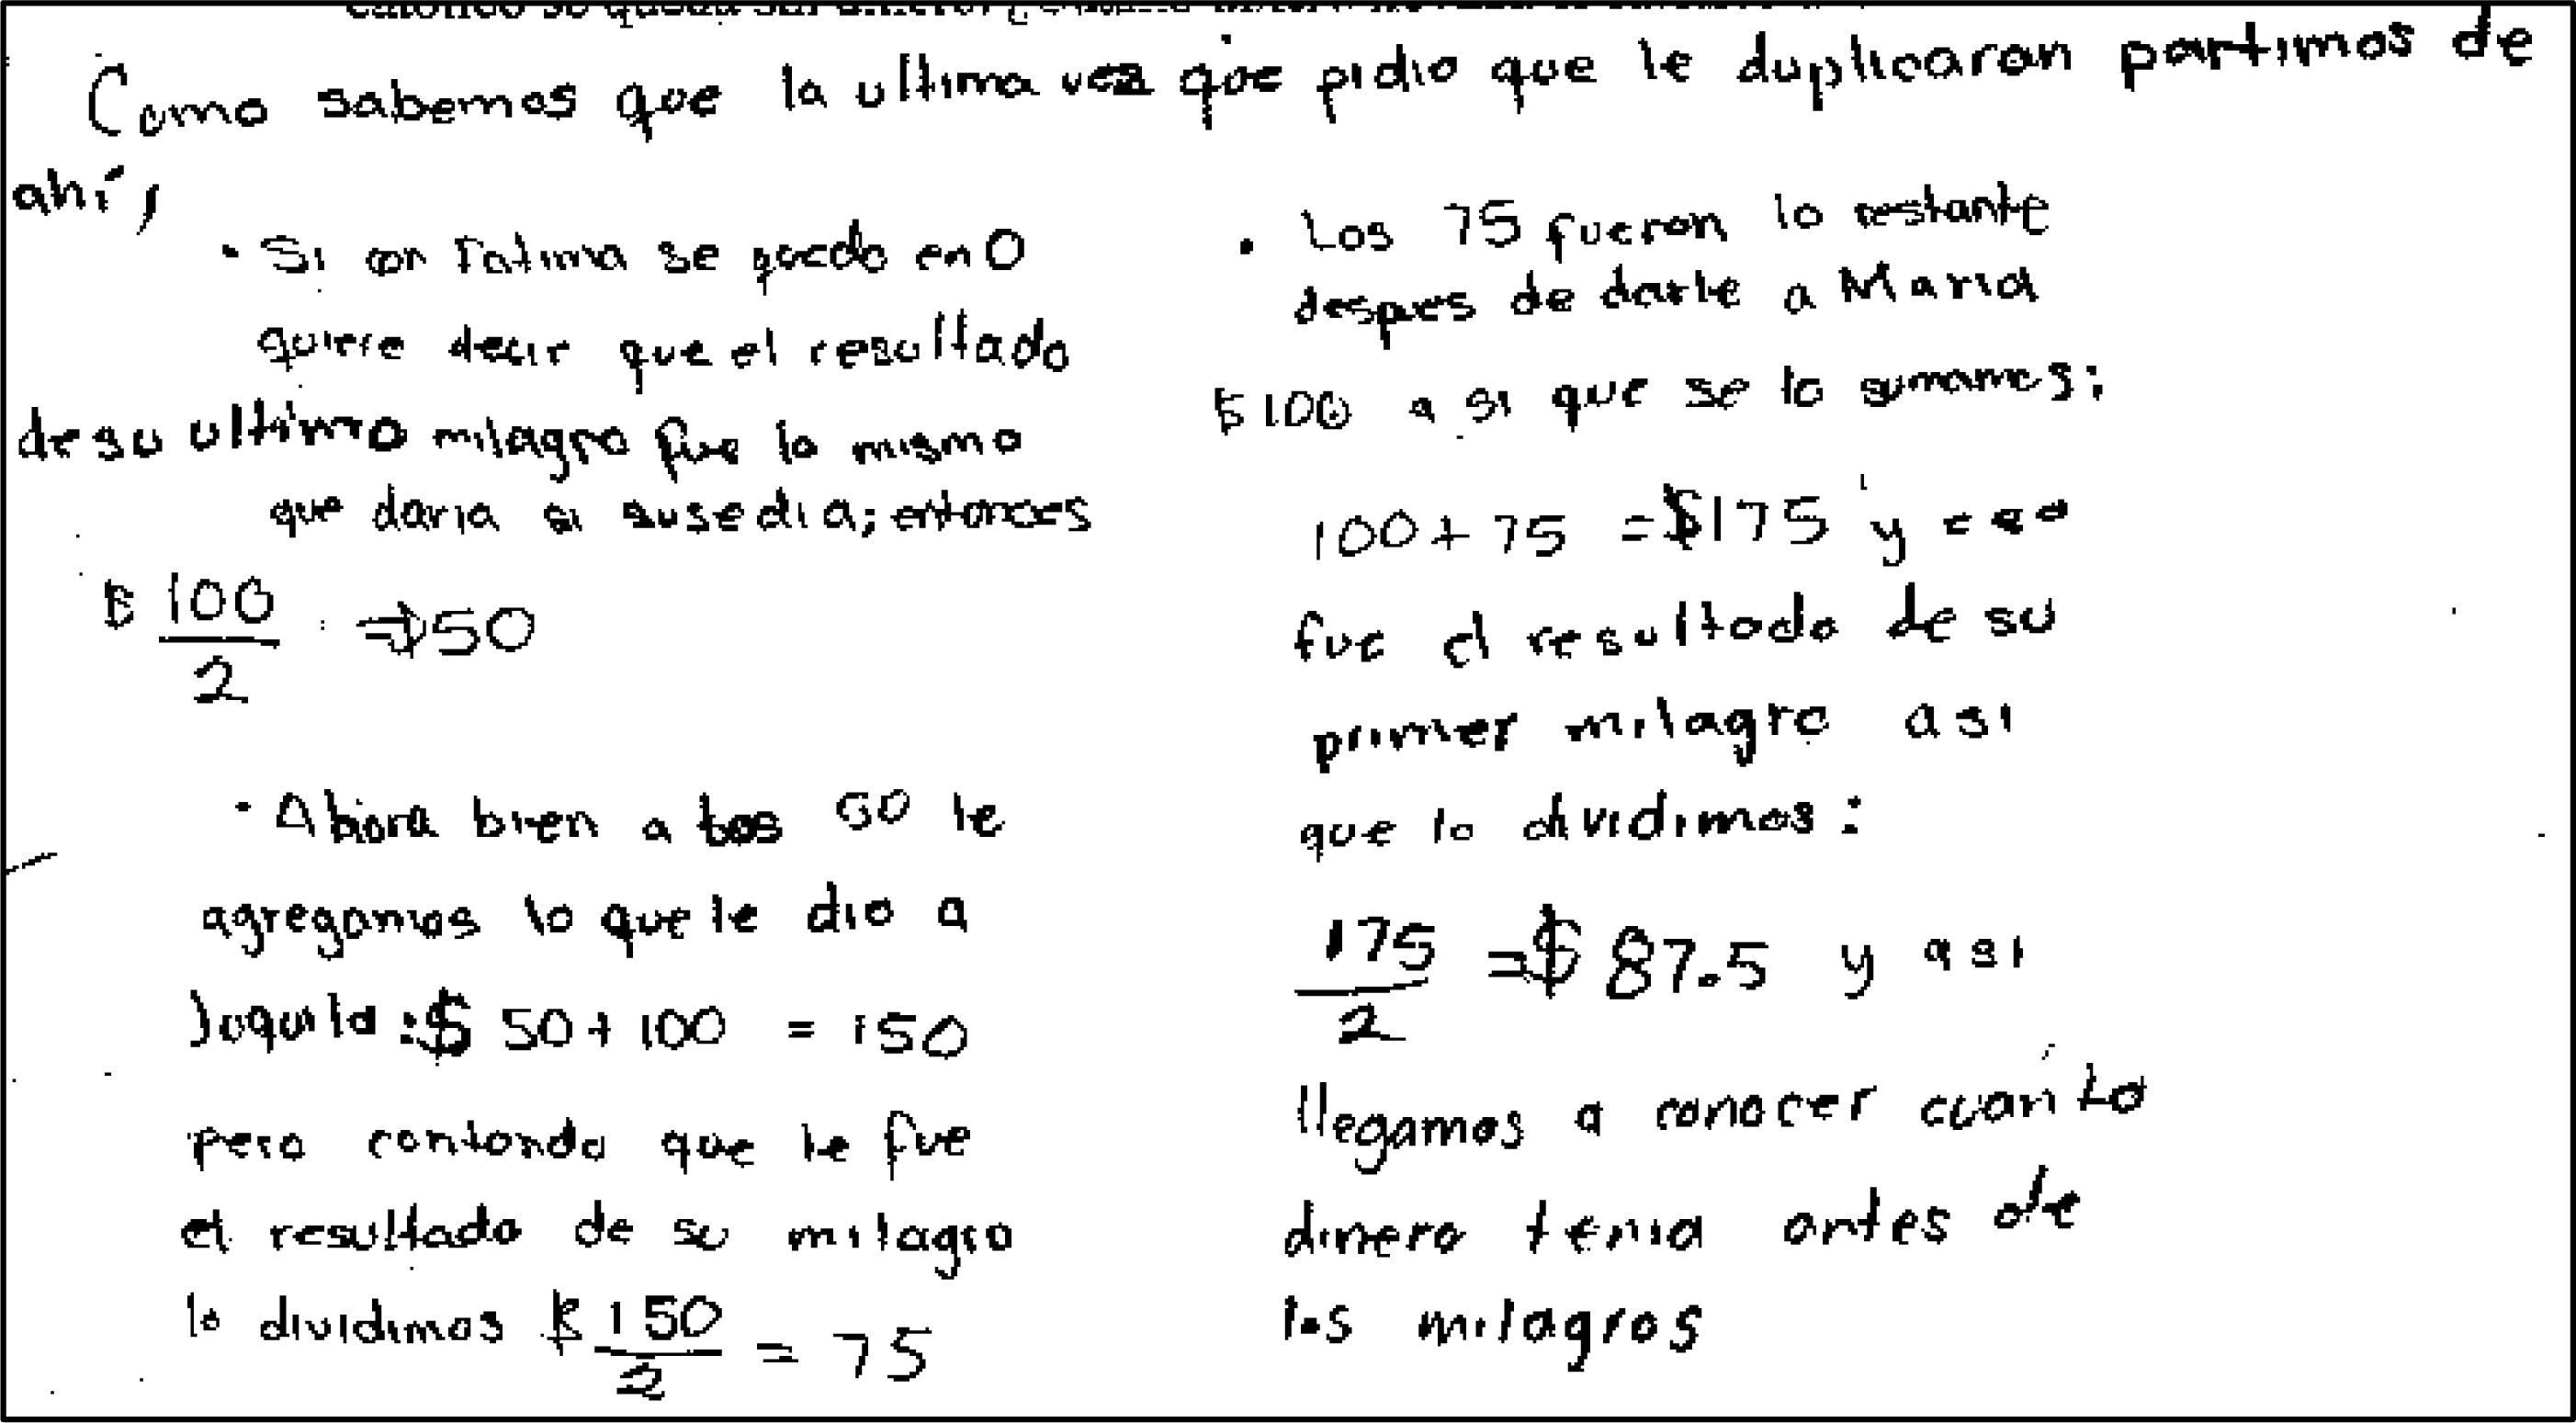 Como sabemos que la ultima vez que pidio que le duplicaran partimos de
ahí,
• Si con Fatima se quedo en 0
quiere decir que el resultado
de su ultimo milagro fue lo mismo
que daria si susedia; entonces
$ 100
2
⇒ 50
• Ahora bien a los 50 le
agregamos lo que le dio a
Juquila: $ 50 + 100 = 150
pero contando que le fue
el resultado de su milagro
lo dividimos $ 150
2
= 75
• Los 75 fueron lo restante
despues de darle a Maria
$100 a si que se lo sumamos:
100 + 75 = $175 y eso
fue el resultado de su
primer milagro asi
que lo dividimos:
175
2
= $ 87.5 y asi
llegamos a conocer cuanto
dinero tenia antes de
los milagros